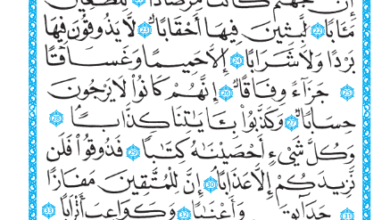 إِنَّ جَهَنَّمَ كَانَتْ مِرْصَادًا ۝٢١ لِّلطَّٰغِينَ
مَـَٔابًا ۝٢٢ لَّٰبِثِينَ فِيهَآ أَحْقَابًا ۝٢٣ لَّا يَذُوقُونَ فِيهَا
بَرْدًا وَلَا شَرَابًا ۝٢٤ إِلَّا حَمِيمًا وَغَسَّاقًا
۝٢٥ جَزَآءً وِفَاقًا ۝٢٦ إِنَّهُمْ كَانُوا۟ لَا يَرْجُونَ
حِسَابًا ۝٢٧ وَكَذَّبُوا۟ بِـَٔايَٰتِنَا كِذَّابًا ۝٢٨
وَكُلَّ شَىْءٍ أَحْصَيْنَٰهُ كِتَٰبًا ۝٢٩ فَذُوقُوا۟ فَلَن
نَّزِيدَكُمْ إِلَّا عَذَابًا ۝٣٠ إِنَّ لِلْمُتَّقِينَ مَفَازًا
۝٣١ حَدَآئِقَ وَأَعْنَٰبًا ۝٣٢ وَكَوَاعِبَ أَتْرَابًا ۝٣٣